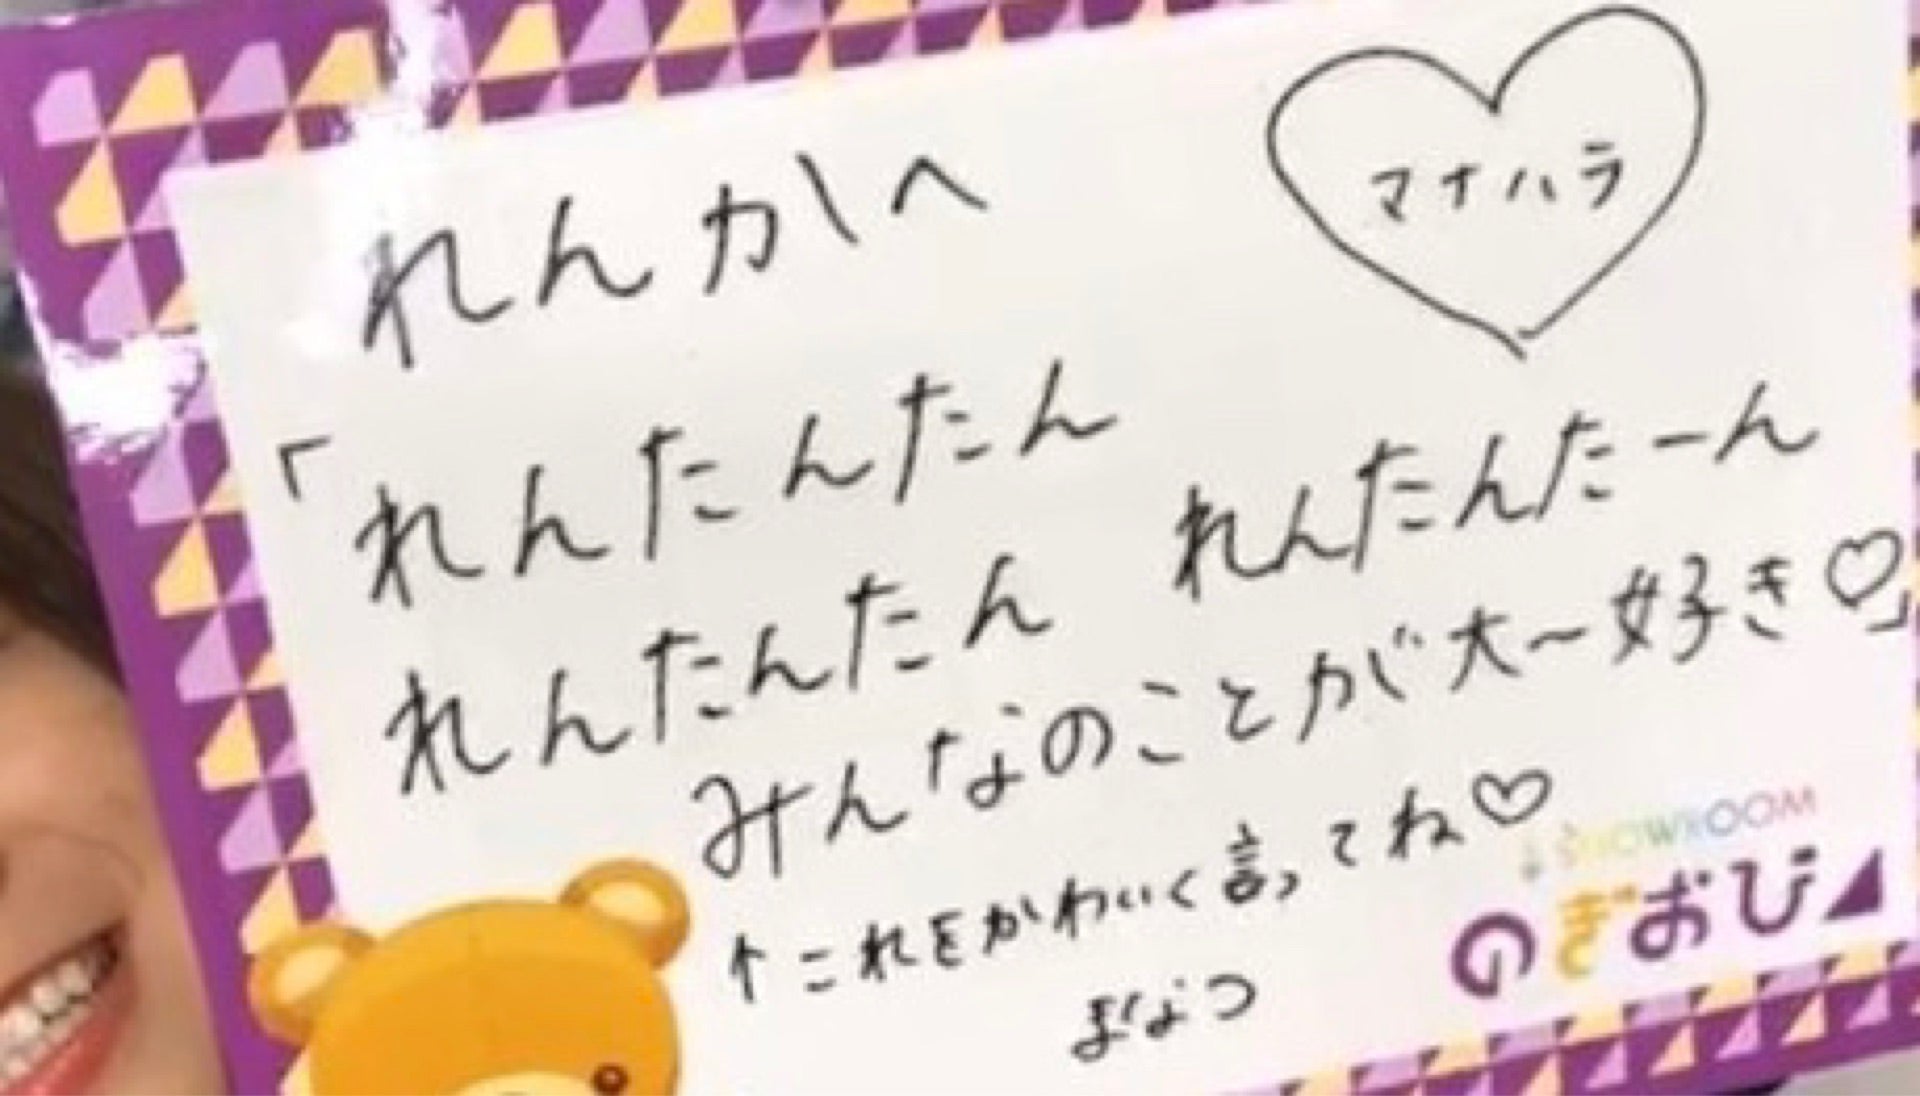 れんかへ
マナハラ
「れんたんたん れんたんたーん
れんたんたん
みんなのことが大〜好き♡」
↑これをかわいく言ってね♡
まなつ
SHOWROOM
のぎおび